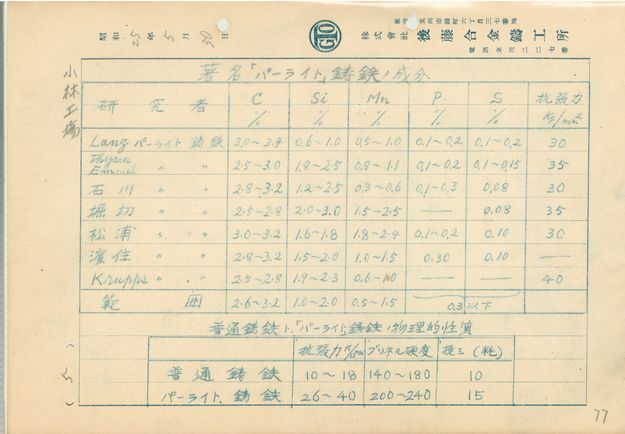 昭和 25 年 5 月 30 日
GTO
東京都立川市錦町六丁目三七番地
株式會社 後藤合金鑄工所
電話立川二二七番
小林工場
著名「パーライト」鋳鉄ノ成分
研究者 C % Si % Mn % P % S % 抗張力 Kg/mm²
Lanz パーライト鋳鉄 3.0~3.4 0.6~1.0 0.5~1.0 0.1~0.2 0.1~0.2 30
Thysen Emmel 〃 〃 2.5~3.0 1.8~2.5 0.8~1.1 0.1~0.2 0.1~0.15 35
石川 〃 〃 2.8~3.2 1.2~2.5 0.3~0.6 0.1~0.3 0.08 30
堀切 〃 〃 2.5~2.8 2.0~3.0 1.5~2.5 — 0.08 35
松浦 〃 〃 3.0~3.2 1.6~1.8 1.8~2.4 0.1~0.2 0.10 30
濱住 〃 〃 2.8~3.2 1.5~2.0 1.0~1.5 0.30 0.10 —
Krupps 〃 〃 2.5~2.8 1.9~2.3 0.6~1.0 — — 40
範囲 2.6~3.2 1.0~2.0 0.5~1.5 0.3以下
普通鋳鉄ト「パーライト」鋳鉄ノ物理的性質
抗張力 ブリネル硬度 撓ミ(粍)
普通鋳鉄 10~18 140~180 10
パーライト鋳鉄 26~40 200~240 15
77